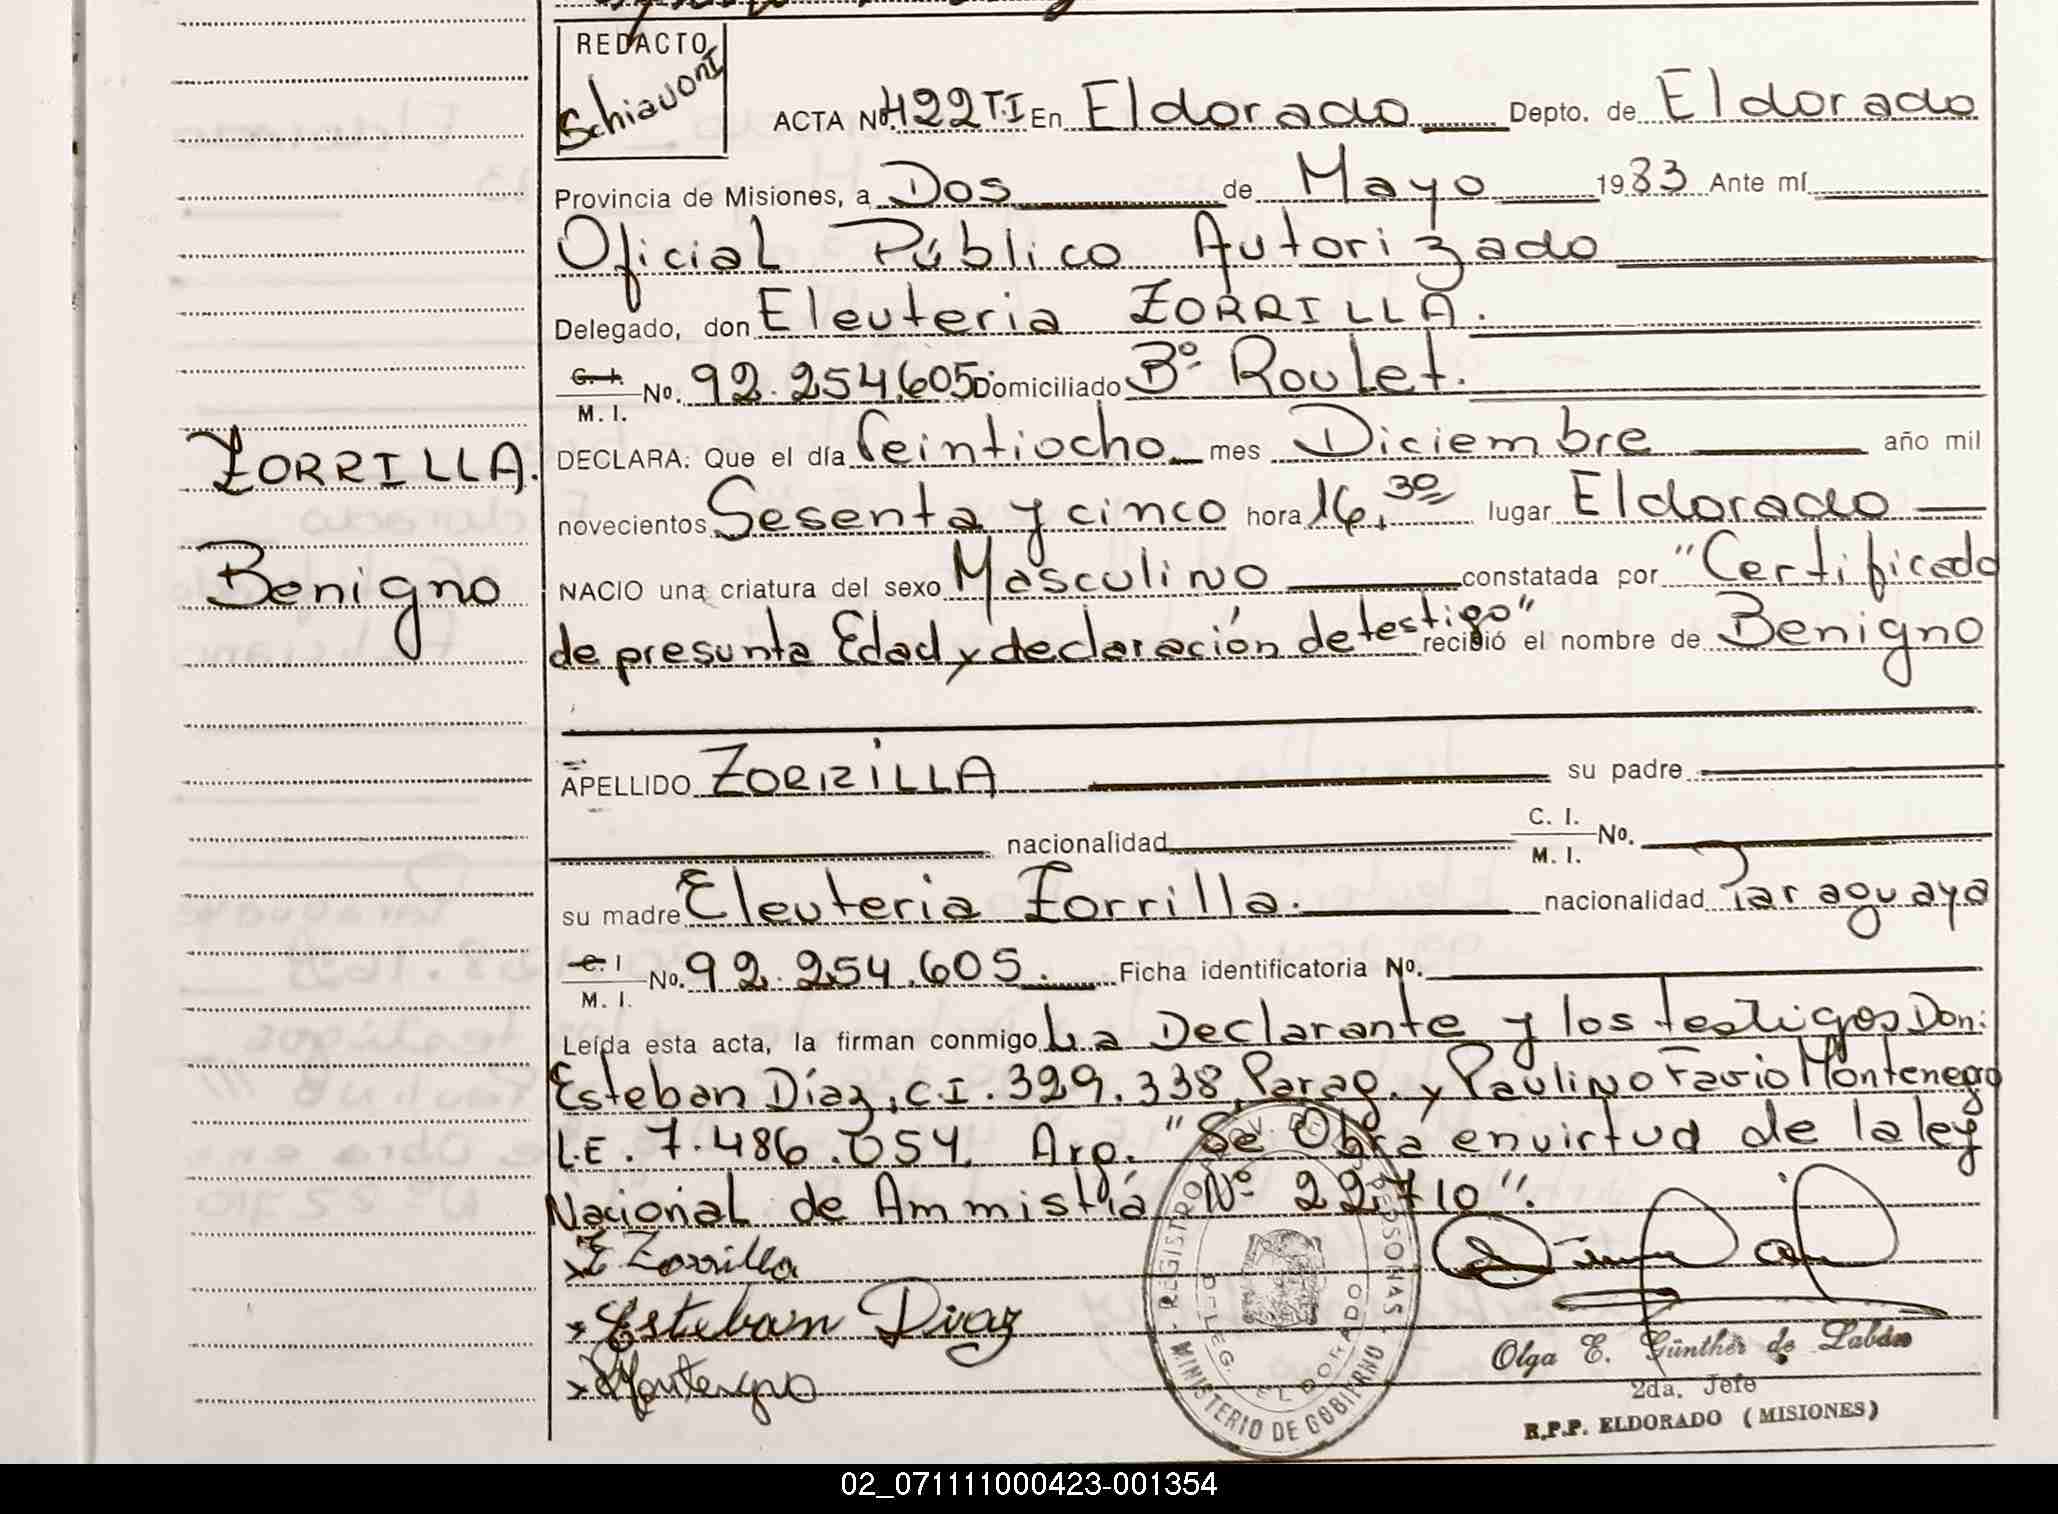 REDACTO
Schiavoni
ACTA Nº 422 T.I En Eldorado Depto. de Eldorado
Provincia de Misiones, a Dos de Mayo 1983 Ante mí
Oficial Público Autorizado
Delegado, don Eleuteria ZORRILLA.
C. I. M. I. No. 92.254.605 Domiciliado Bº Roulet.
DECLARA: Que el día Veintiocho mes Diciembre año mil
novecientos Sesenta y cinco hora 16,30 lugar Eldorado
NACIO una criatura del sexo Masculino constatada por "Certificado
de presunta Edad y declaración de testigo" recibió el nombre de Benigno
ZORRILLA.
Benigno
APELLIDO ZORRILLA su padre
nacionalidad C. I. M. I. No.
su madre Eleuteria Zorrilla. nacionalidad Paraguaya
C. I M. I. No. 92.254.605. Ficha identificatoria No.
Leída esta acta, la firman conmigo La Declarante y los testigos Don:
Esteban Díaz, C.I. 329.338 Parag. y Paulino Favio Montenegro
L.E. 7.486.054. Arg. "Se Obra en virtud de la ley
Nacional de Ammistía Nº 22.710".
x E Zorrilla
x Esteban Diaz
x Montenegro
REGISTRO PROV. DE LAS PERSONAS
DELEG. ELDORADO
MINISTERIO DE GOBIERNO
Olga E. Günther de Labán
2da. Jefe
R.P.P. ELDORADO (MISIONES)
02_071111000423-001354